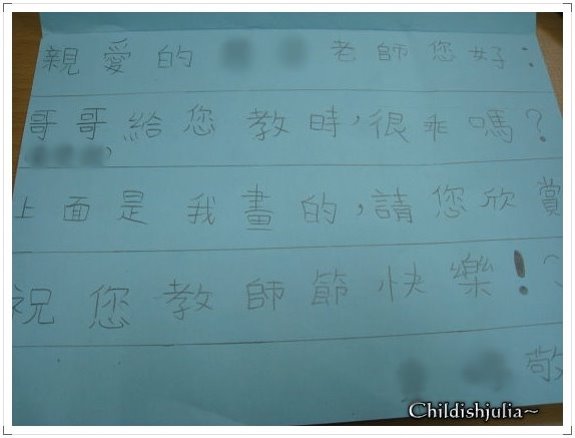 親愛的 老師您好:
哥哥給您教時,很乖嗎?
上面是我畫的,請您欣賞
祝您教師節快樂!
敬
Childishjulia~